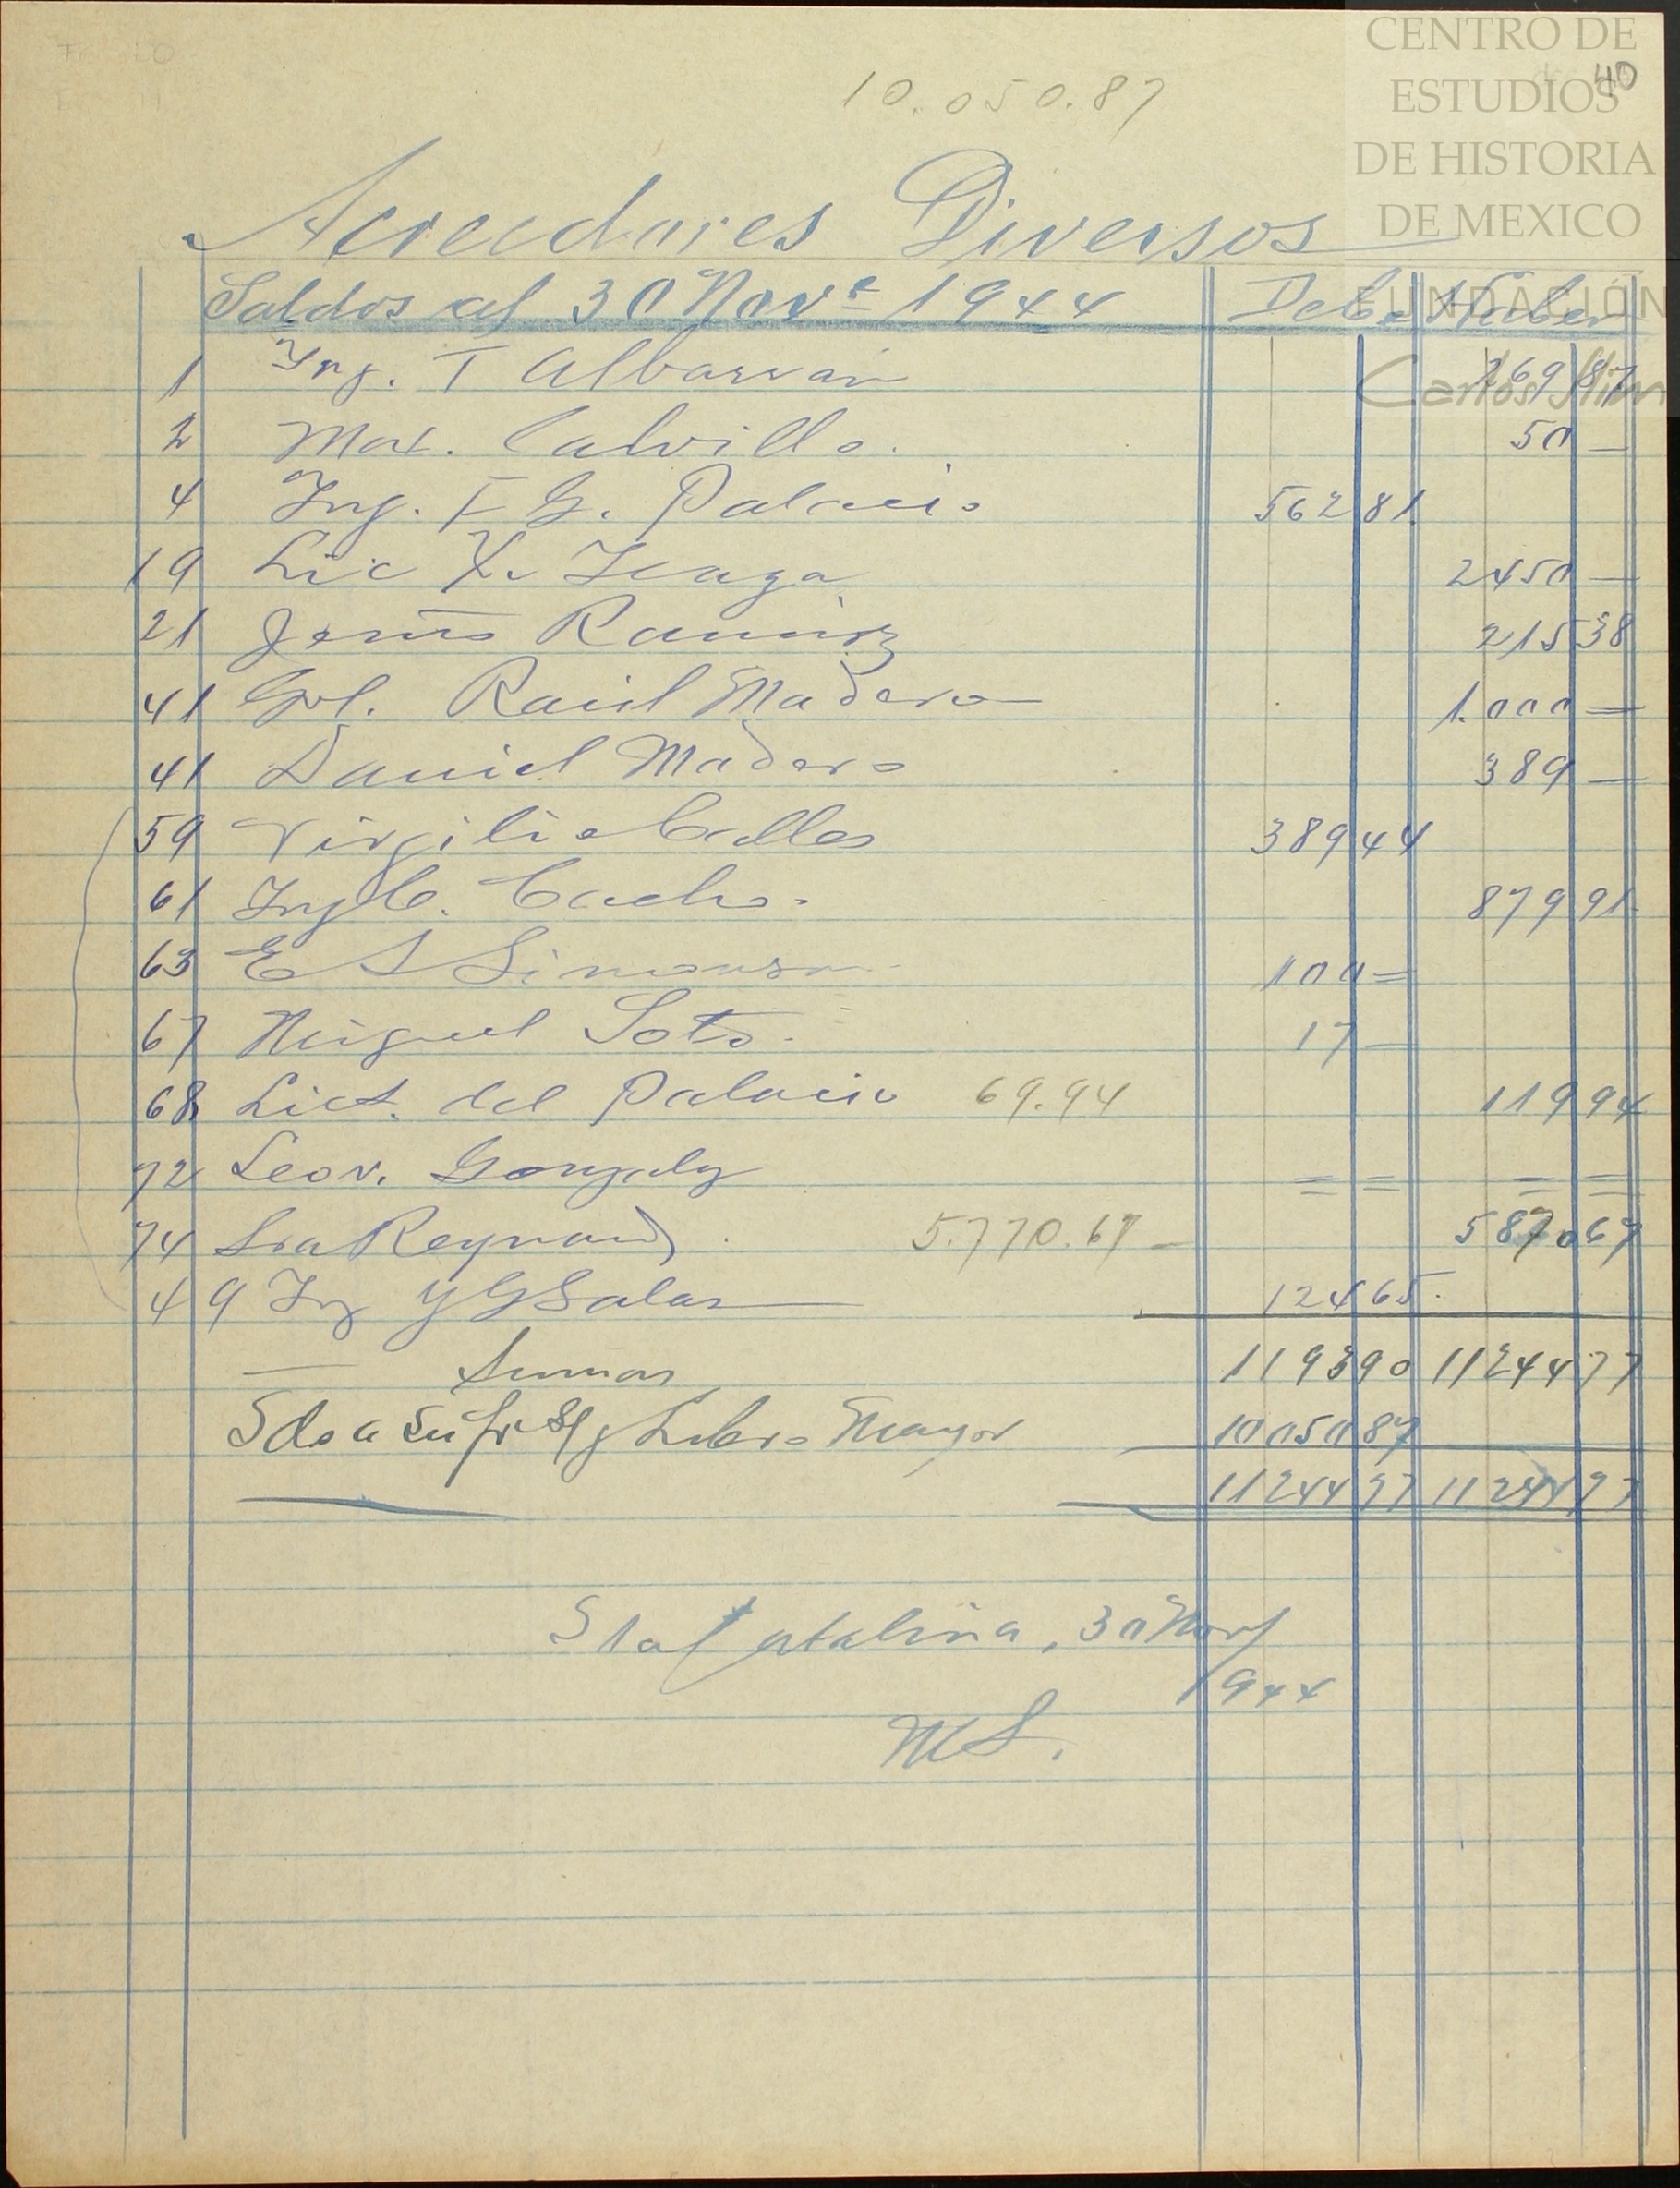 CENTRO DE
ESTUDIOS
DE HISTORIA
DE MEXICO
FUNDACIÓN
Carlos Slim
40
10.050.87
Acreedores Diversos
Saldos al 30 Nove 1944 Debe Haber
1 Ing. T Albarran 269 87
2 Max. Calvillo. 50 —
4 Ing. F G. Palacio 562 81
19 Lic 2450 —
21 Jesus Ramirez 215 38
41 Gral. Raúl Madero 1.000 —
41 Daniel Madero 389 —
59 Virgilio Calles 389 44
61 Ing C. Cacho. 879 91
63 E S Simonson 100 =
67 Miguel Soto. 17 —
68 Lict. del Palacio 69.94 119 94
72 Leov. Gonzalez = = = =
74 Sra Reynaud 5.770.67 — 5870 67
49 Ing Y G Salas 124 65
Sumas 1193 90 11244 77
Sdo a Libro Mayor 10050 87
11244 77 11244 77
Sta Catalina, 30 Nov/
1944
MS.